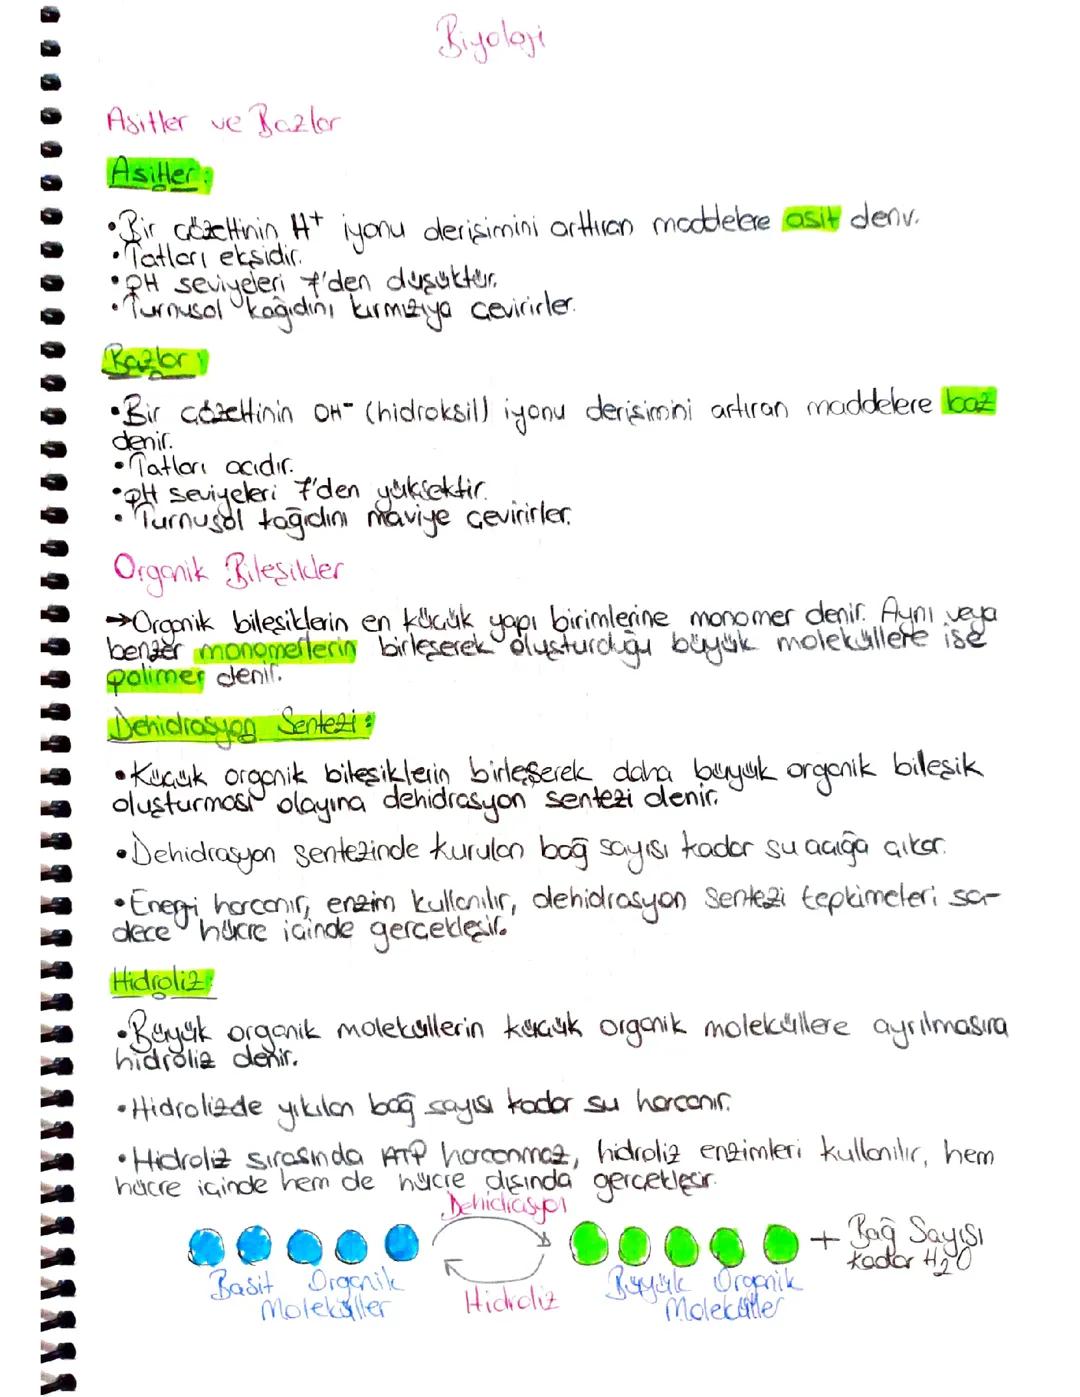 Biyoloji
Asitler ve Bazlar
Asitler:
•Bir çözeltinin H+ iyonu derişimini arttıran maddelere asit denir.
•Tatları ekşidir.
•pH seviyeleri 7'den düşüktür.
•Turnusol kağıdını kırmızıya çevirirler.
Bazlar:
•Bir çözeltinin OH- (hidroksil) iyonu derişimini artıran maddelere baz
denir.
•Tatları acıdır.
•pH seviyeleri 7'den yüksektir.
•Turnusol kağıdını maviye çevirirler.
Organik Bileşikler
→Organik bileşiklerin en küçük yapı birimlerine monomer denir. Aynı veya
benzer monomerlerin birleşerek oluşturduğu büyük moleküllere ise
polimer denir.
Dehidrasyon Sentezi:
•Küçük organik bileşiklerin birleşerek daha büyük organik bileşik
oluşturması olayına dehidrasyon sentezi denir.
•Dehidrasyon sentezinde kurulan bağ sayısı kadar su açığa çıkar.
•Enerji harcanır, enzim kullanılır, dehidrasyon sentezi tepkimeleri sa-
dece hücre içinde gerçekleşir.
Hidroliz:
•Büyük organik moleküllerin küçük organik moleküllere ayrılmasına
hidroliz denir.
•Hidrolizde yıkılan bağ sayısı kadar su harcanır.
•Hidroliz sırasında ATP harcanmaz, hidroliz enzimleri kullanılır, hem
hücre içinde hem de hücre dışında gerçekleşir.
Dehidrasyon
+ Bağ Sayısı
kadar H2O
Basit Organik
Moleküller
Hidroliz
Büyük Organik
Moleküller